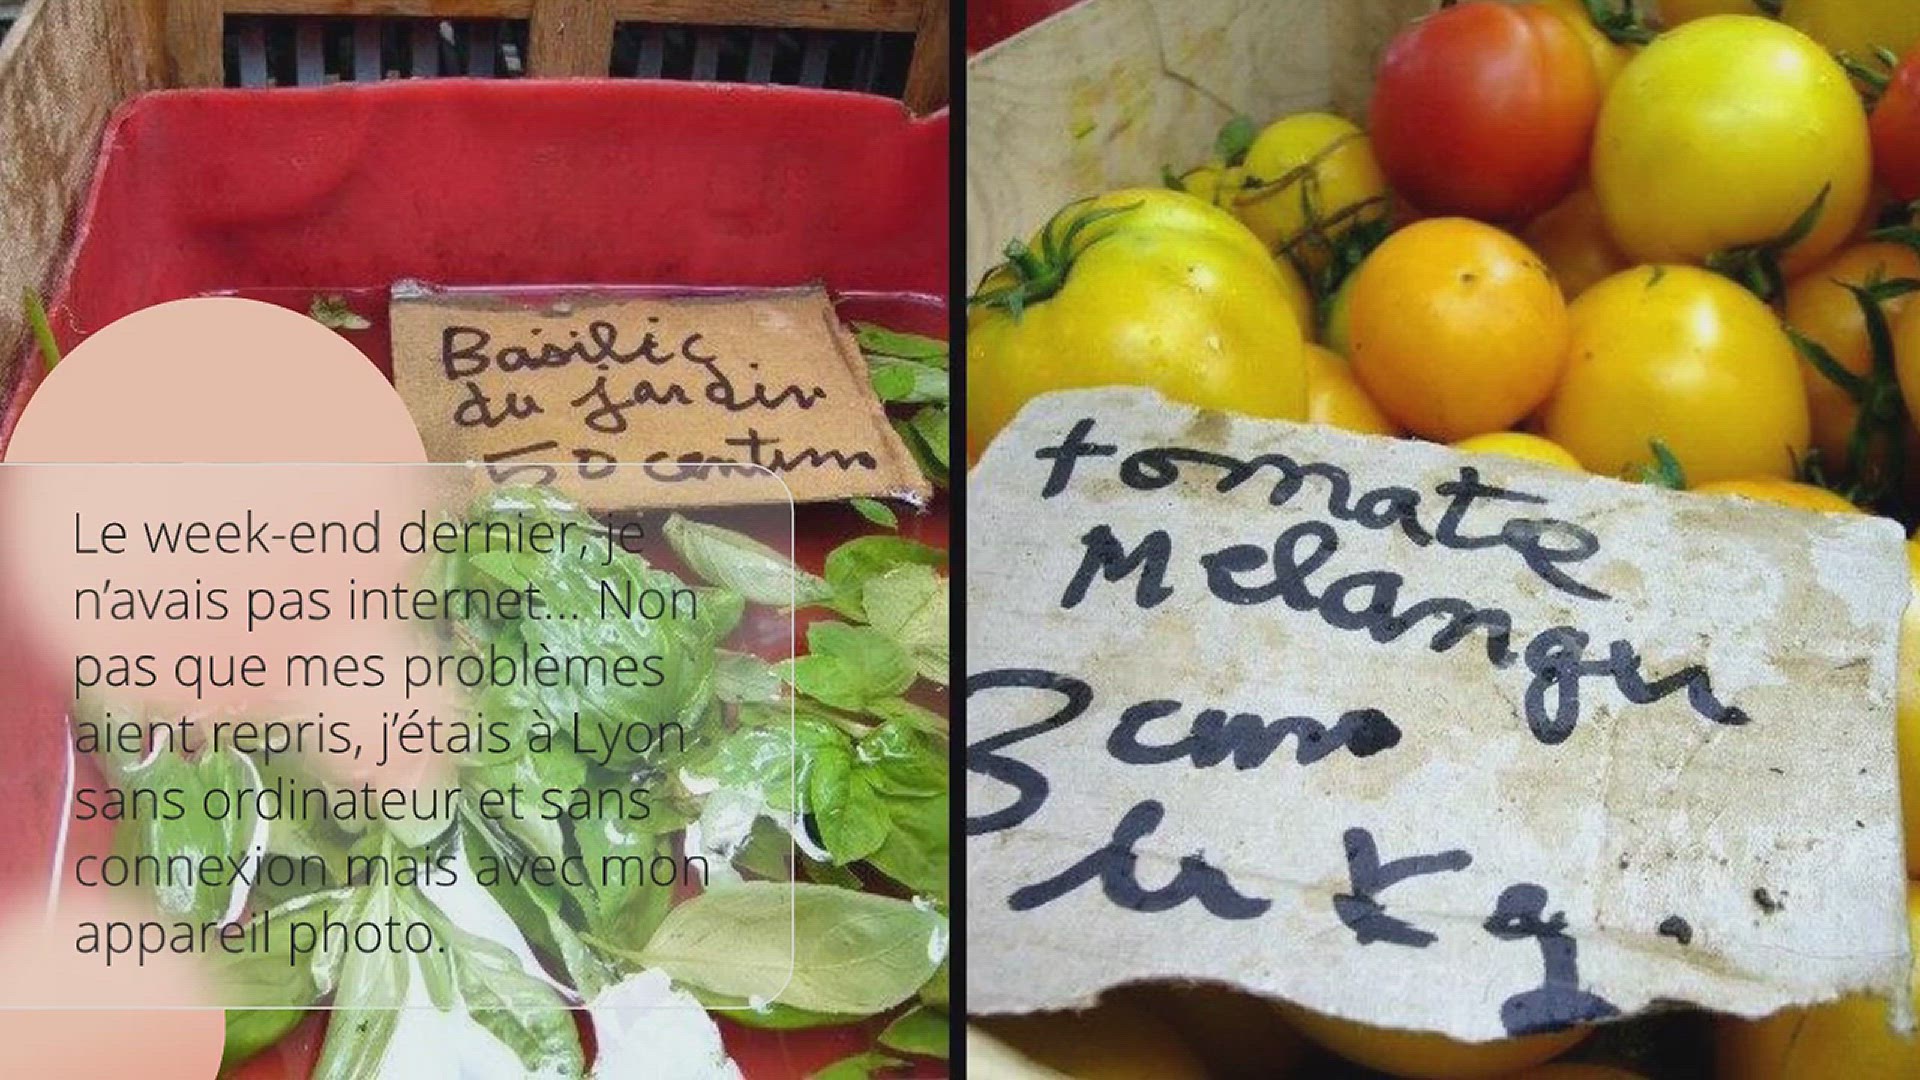 Basilic
du jardin
50 centims
Le week-end dernier, je
n’avais pas internet... Non
pas que mes problèmes
aient repris, j’étais à Lyon
sans ordinateur et sans
connexion mais avec mon
appareil photo.
tomate
Melanger
3 euros
le Kg